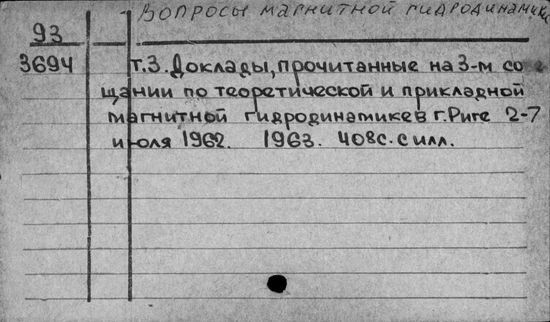 Вопросы магнитной гидродинамики
93
3694 т.3. Доклады, прочитанные на 3-м сове
щании по теоретической и прикладной
магнитной гидродинамике в г. Риге 2-7
июля 1962. 1963. 408с. с илл.